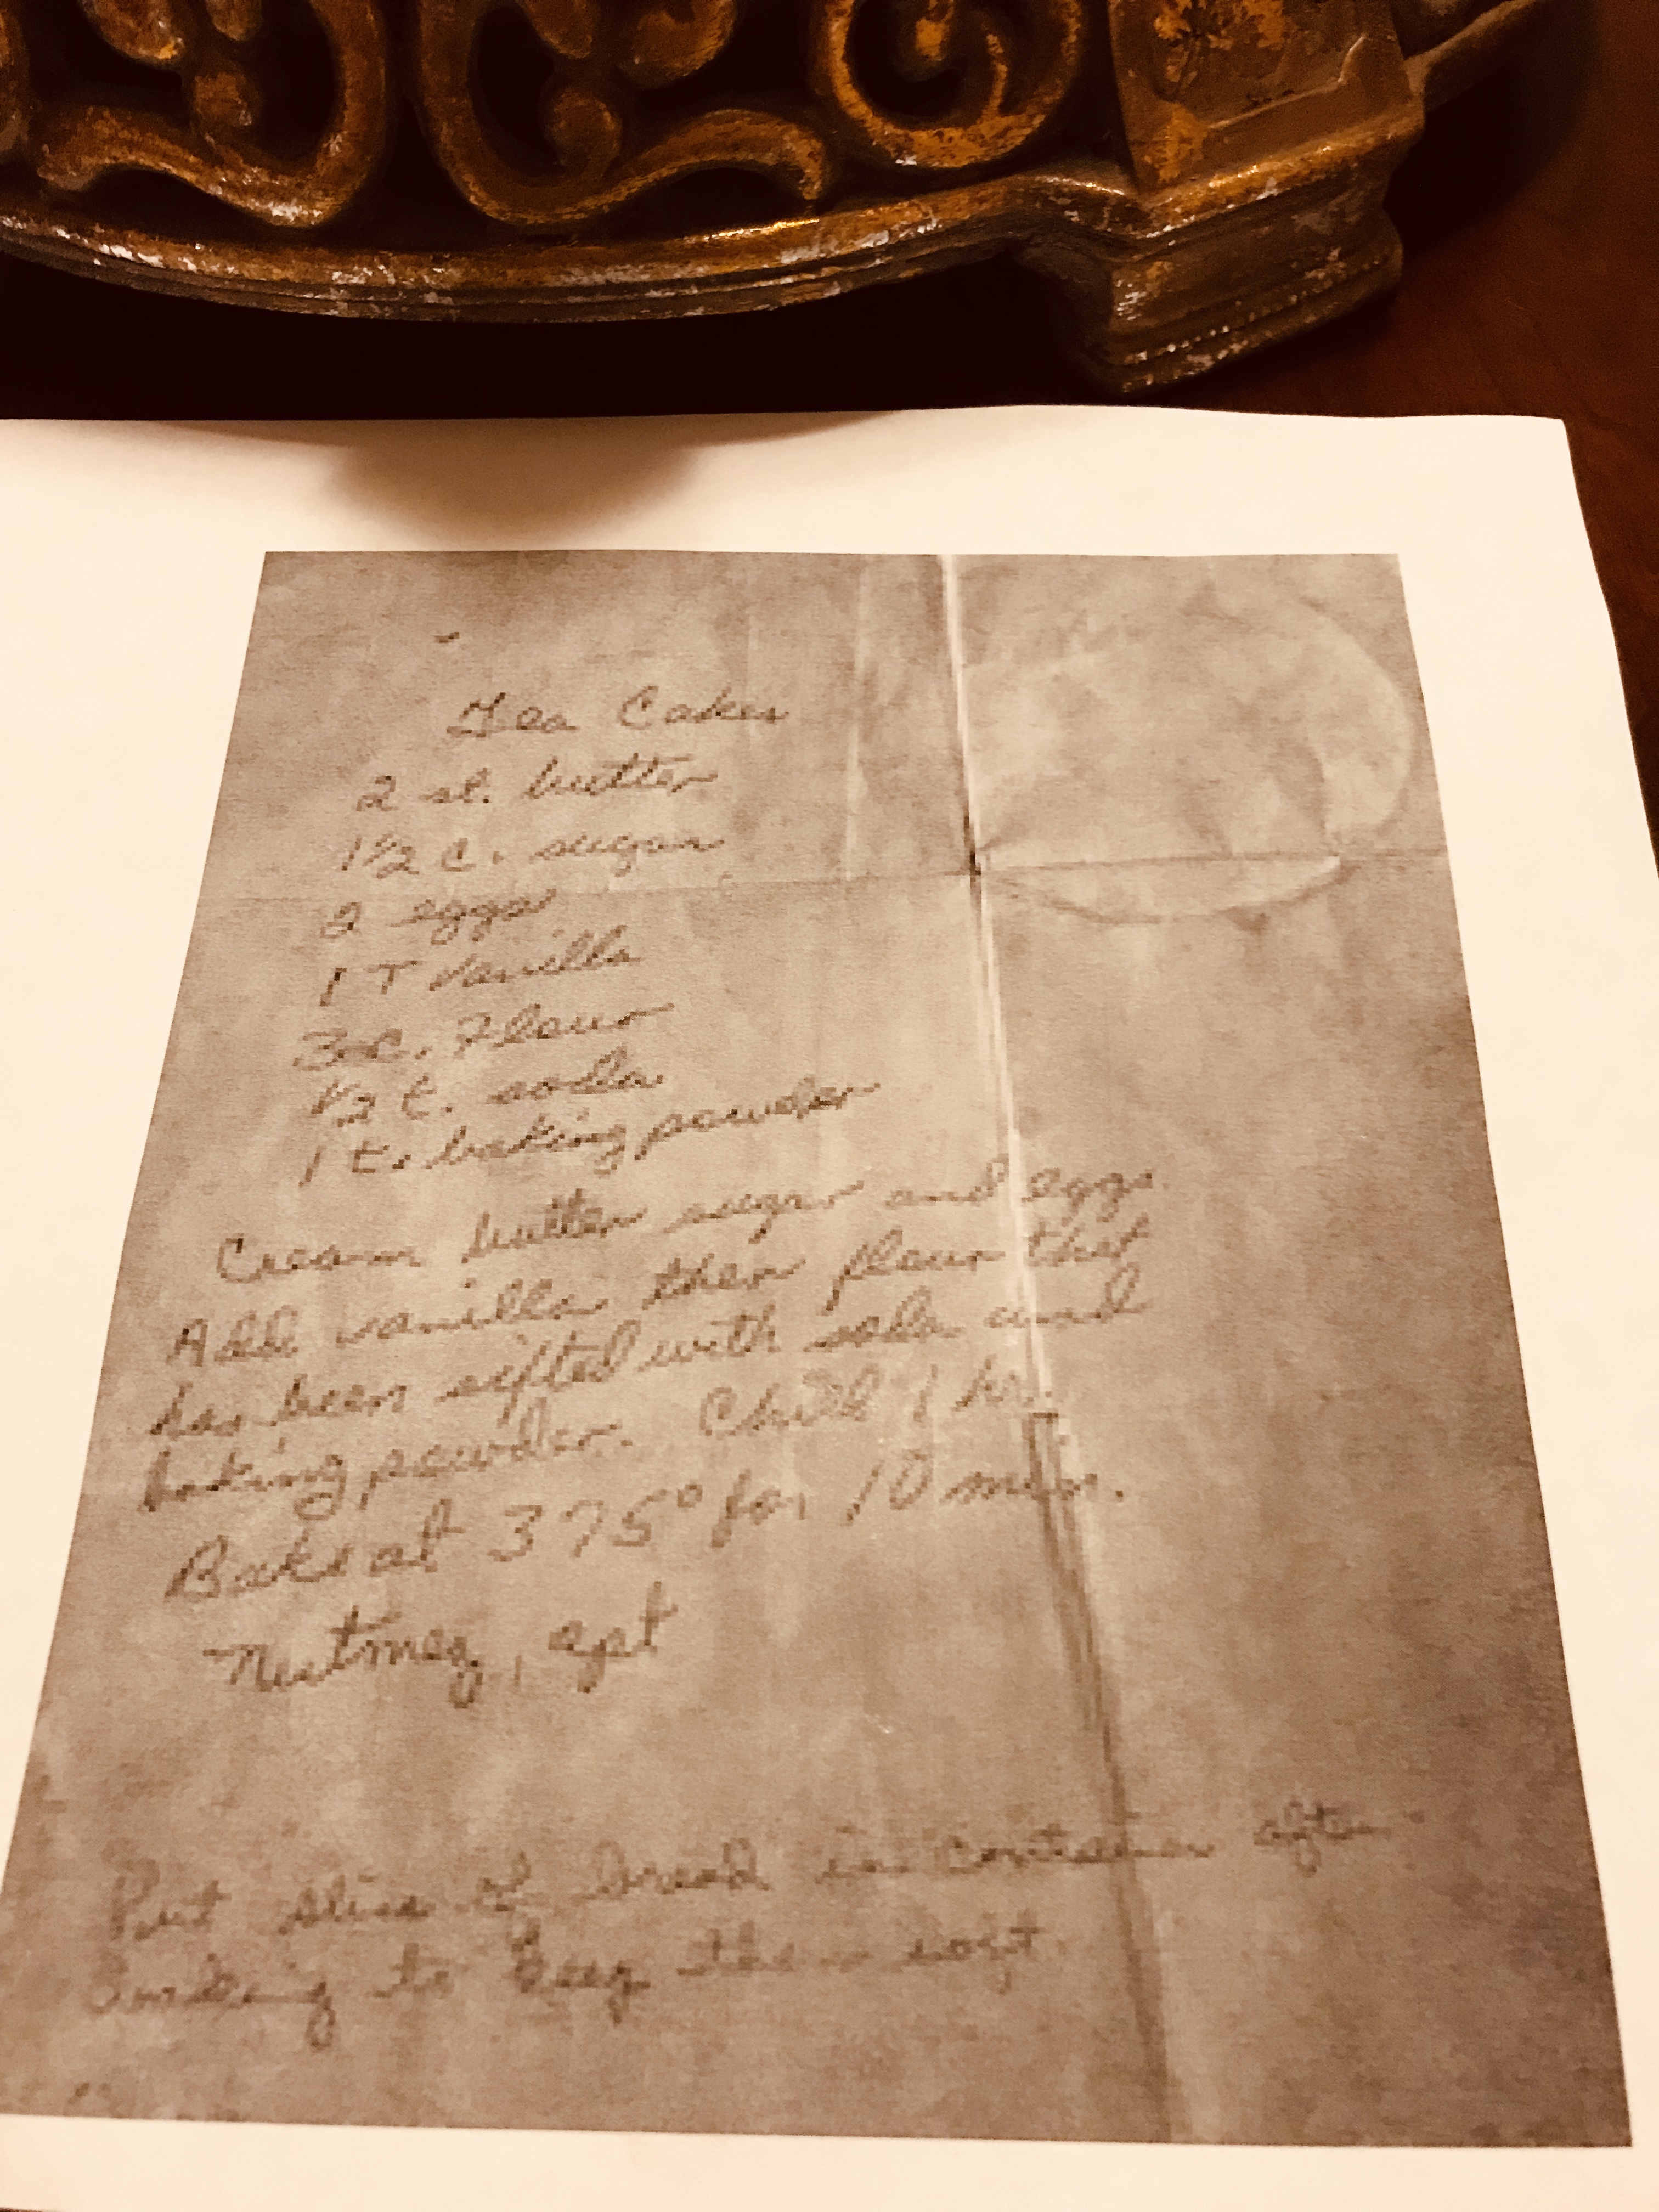 Tea Cakes
2 st. butter
1 1/2 c. sugar
2 eggs
1 T Vanilla
3 c. Flour
1/2 t. soda
1 t. baking powder
Cream butter sugar and eggs.
Add vanilla then flour that
has been sifted with soda and
baking powder. Chill 1 hr.
Bake at 375° for 10 min.
Nutmeg, opt
Put slice of bread in container after
cooking to keep them soft.